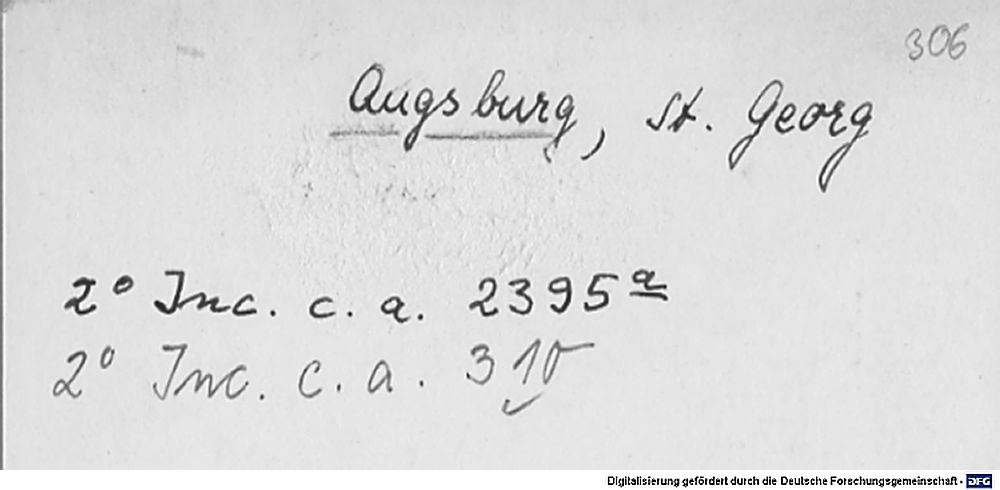 306
Augsburg, St. Georg
2° Inc. c. a. 2395 a
2° Inc. c. a.
Digitalisierung gefördert durch die Deutsche Forschungsgemeinschaft - DFG